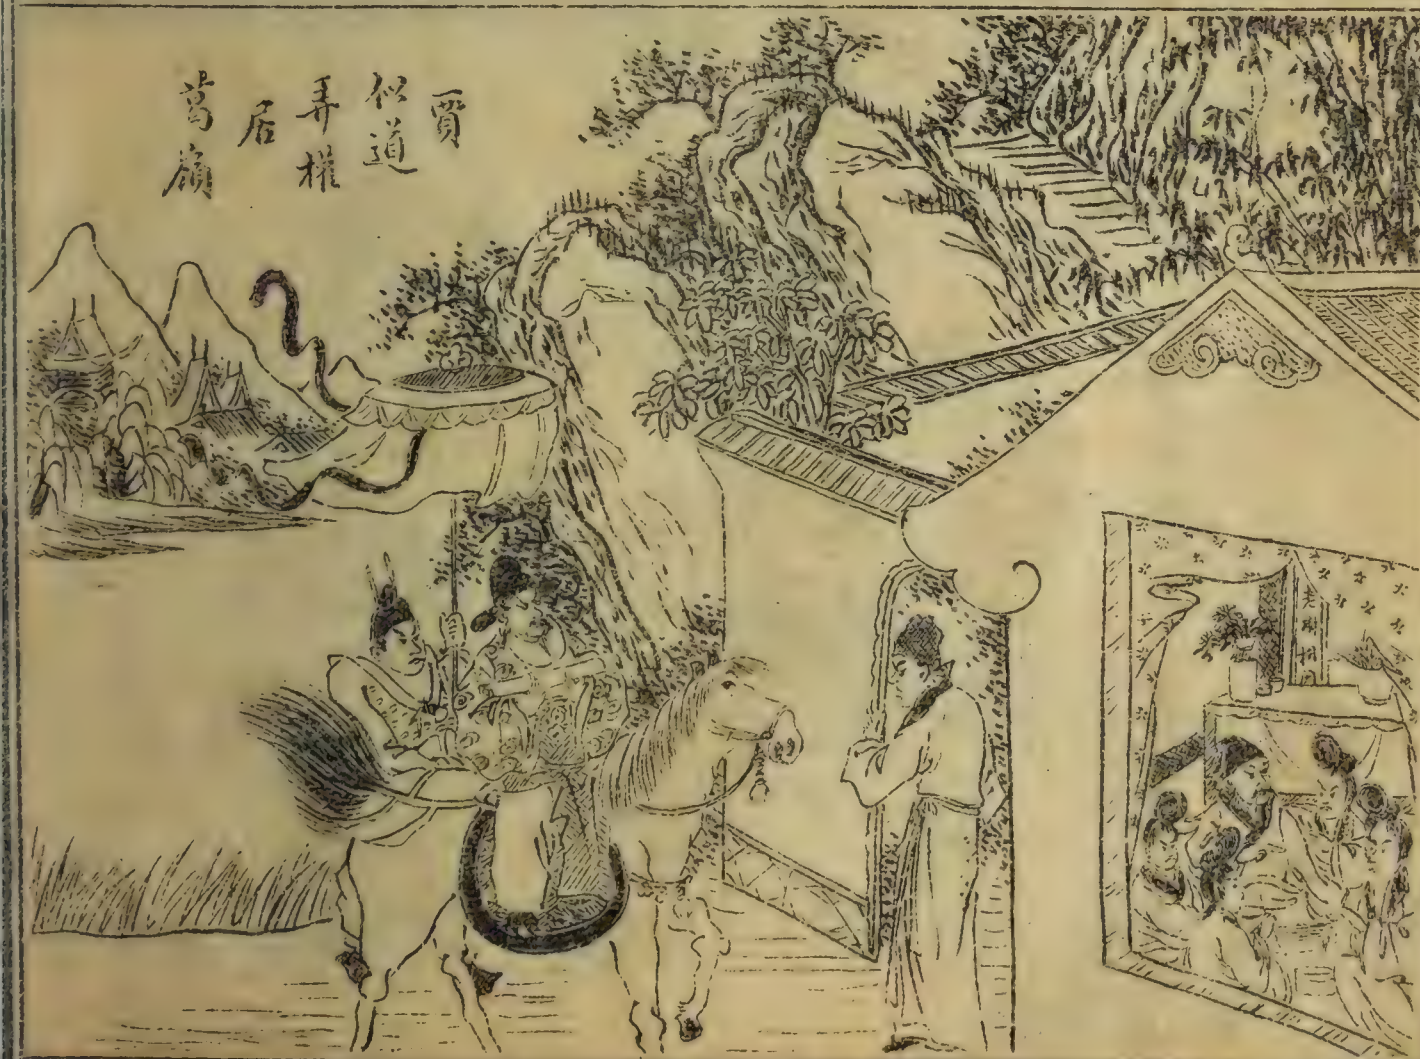 賈
似道
弄權
居
葛嶺